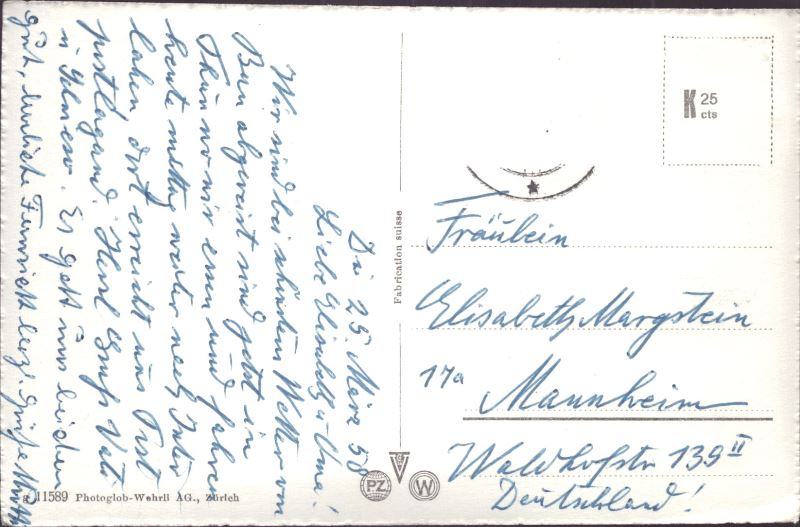 Di 25. März 58
Liebe Elisabeth u. Oma!
Wir sind bei schönstem Wetter von
Bern abgereist sind jetzt in
Thun wo wir essen und fahren
heute mittag weiter nach Inter
laken dort erreicht uns Post
postlagernd. Herzl Gruß Vati
Es geht uns beiden
gut, herrliche Fernsicht herzl. Grüße
Fabrication suisse
K 25
cts
Fräulein
Elisabeth Margstein
17a
Mannheim
Waldhofstr 139 II
Deutschland!
PZ
W
11589 Photoglob-Wehrli AG., Zürich